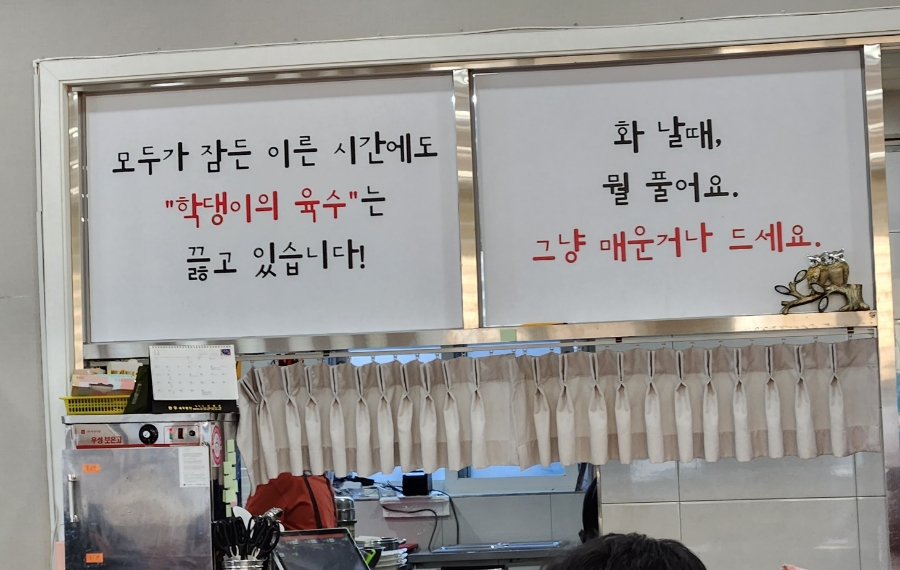 모두가 잠든 이른 시간에도
"학댕이의 육수"는
끓고 있습니다!
화 날때,
뭘 풀어요.
그냥 매운거나 드세요.
우성보온고